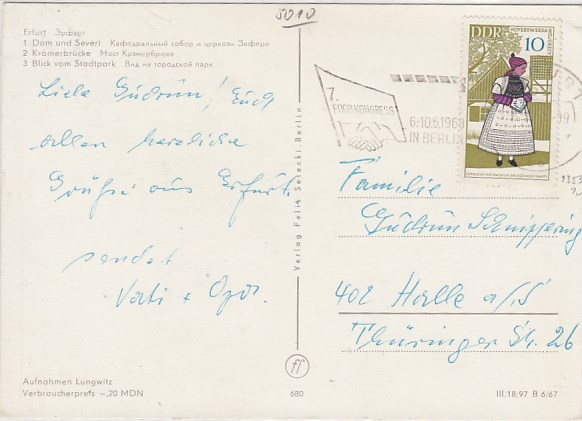 5010
Erfurt Эрфурт
1 Dom und Severi Кафедральный собор и церковь Зефери
2 Krämerbrücke Мост Кремербрюке
3 Blick vom Stadtpark Вид на городской парк
Liebe Gudrun! Euch
allen herzliche
Grüße aus Erfurt.
sendet
Vati + Opa.
Aufnahmen Lungwitz
Verbraucherpreis –,20 MDN
Verlag Felix Setecki Berlin
680
III/18/97 B 6/67
DDR
HOYERSWERDA
10
7.
FDGB-KONGRESS
6.-10.5.1968
IN BERLIN
Familie
Gudrun Schnippering
402 Halle a/S
Thüringer Str. 26